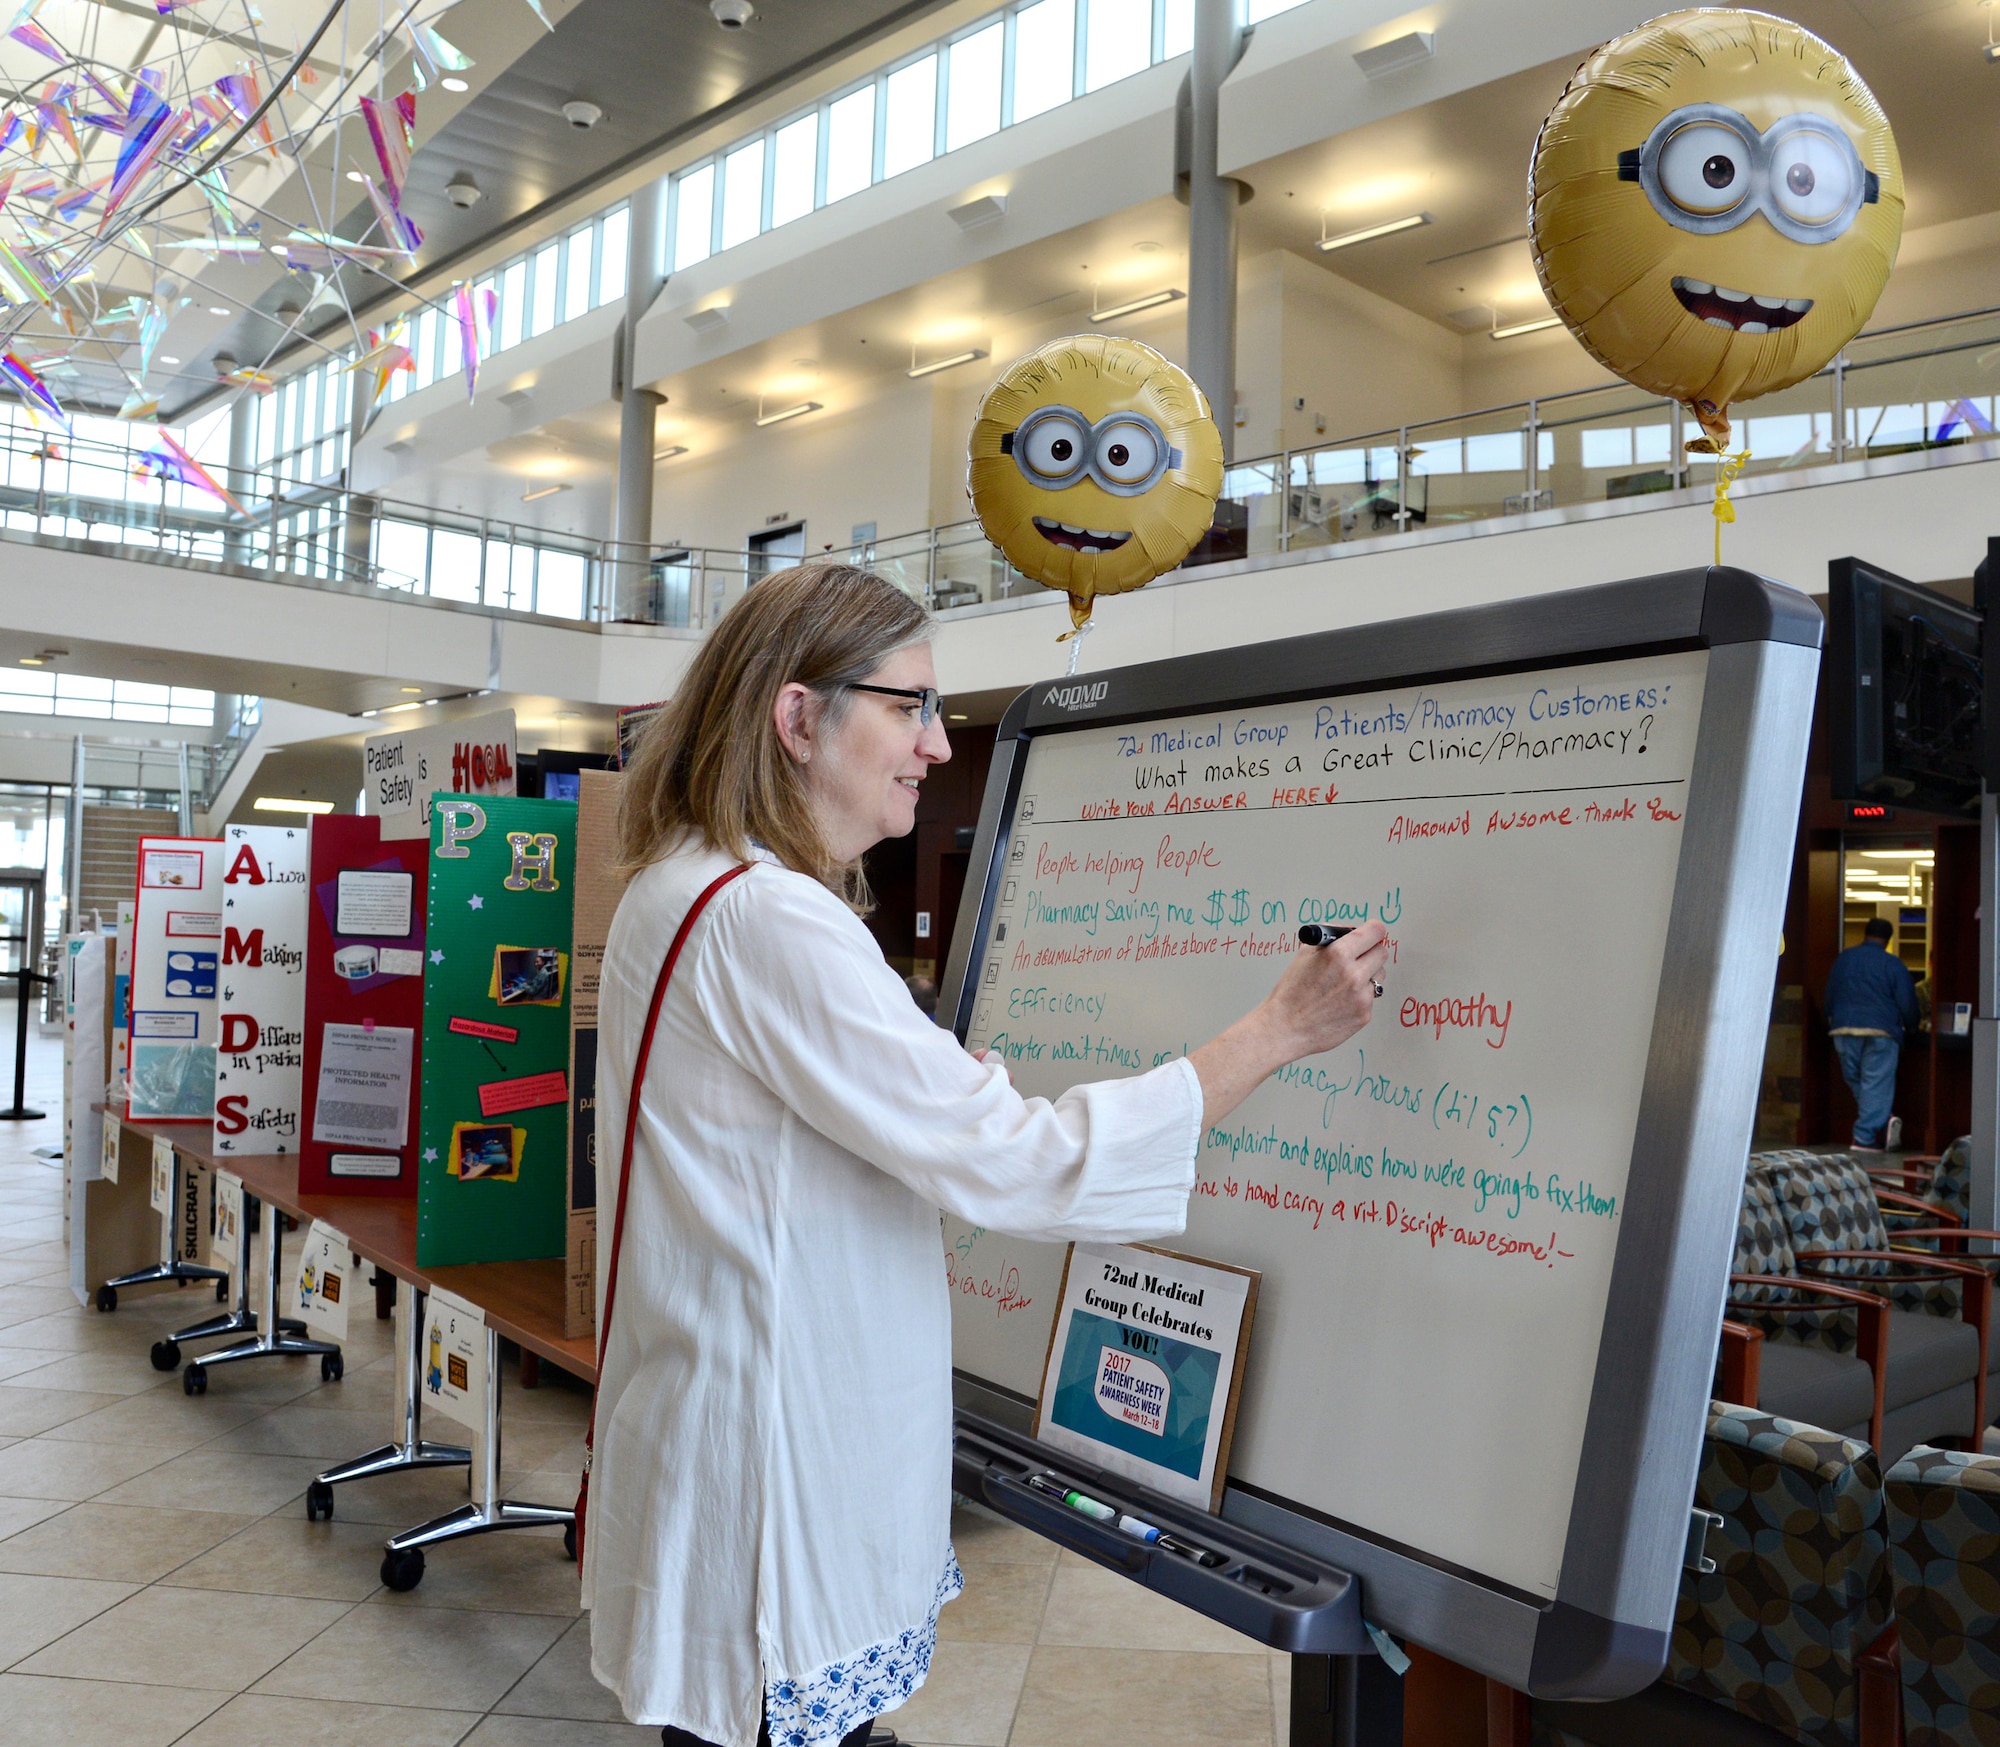 Patient
Safety is
#1 GOAL
P
H
A Lwa
M aking
D iffere
in patie
S afety
HIPAA PRIVACY NOTICE
PROTECTED HEALTH
INFORMATION
HIPAA PRIVACY NOTICE
Hazardous Materials
SKILCRAFT
5
VOTE
HERE
6
VOTE
HERE
QOMO
HiteVision
72d Medical Group Patients/Pharmacy Customers:
What makes a Great Clinic/Pharmacy?
Write Your Answer HERE
Allaround Awsome. Thank You
People helping People
Pharmacy saving me $$ on CODay
An acumulation of both the above + cheerful
Efficiency
empathy
Shorter wait times or macy hours (til 5?)
complaint and explains how we're going to fix them.
ine to hand carry a vit. D script-awesome!-
72nd Medical
Group Celebrates
YOU!
2017
PATIENT SAFETY
AWARENESS WEEK
March 12–18